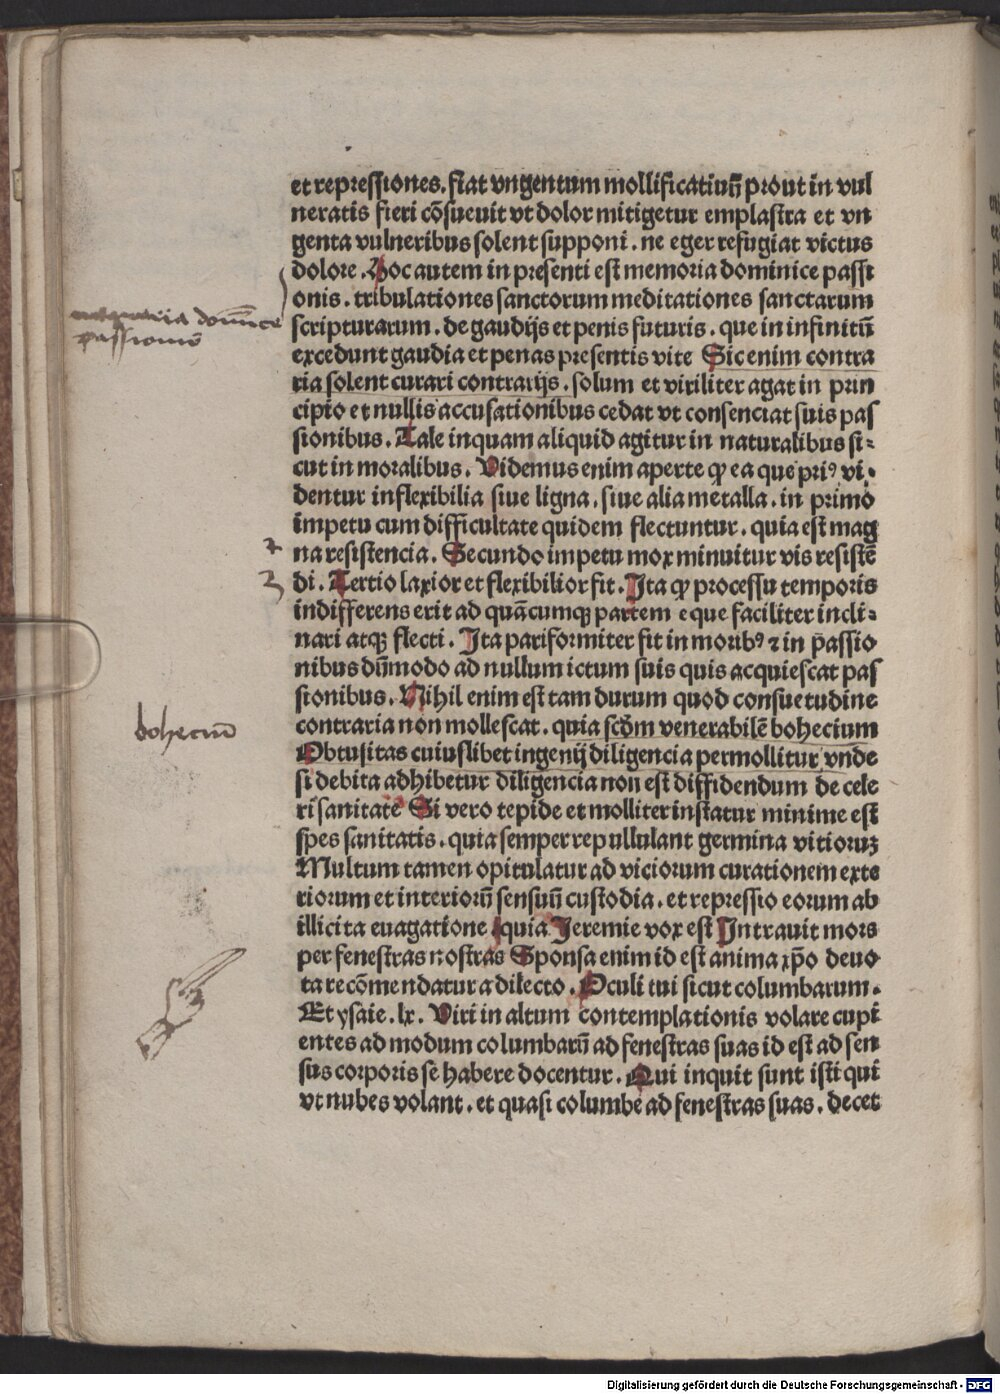 et repressiones. fiat vngentum mollificatiuū prout in vul
neratis fieri cōsueuit vt dolor mitigetur emplastra et vn
genta vulneribus solent supponi. ne eger refugiat victus
dolore. Hoc autem in presenti est memoria dominice passi
onis. tribulationes sanctorum meditationes sanctarum
scripturarum. de gaudijs et penis futuris. que in infinitū
excedunt gaudia et penas presentis vite Sic enim contra
ria solent curari contrarijs. solum et viriliter agat in prin
cipio et nullis accusationibus cedat vt consenciat suis pas
sionibus. Tale inquam aliquid agitur in naturalibus si⸗
cut in moralibus. Videmus enim aperte ꝙ ea que pri⁹ vi⸗
dentur inflexibilia siue ligna. siue alia metalla. in primo
impetu cum difficultate quidem flectuntur. quia est mag
na resistencia. Secundo impetu mox minuitur vis resistē
di. Tertio laxior et flexibilior fit. Ita ꝙ processu temporis
indifferens erit ad quācumqꝫ partem eque faciliter incli⸗
nari atqꝫ flecti. Ita pariformiter fit in morib⁹ ⁊ in passio
nibus dūmodo ad nullum ictum suis quis acquiescat pas
sionibus. Nihil enim est tam durum quod consuetudine
contraria non mollescat. quia scḋm venerabilē bohecium
Obtusitas cuiuslibet ingenij diligencia permollitur vnde
si debita adhibetur diligencia non est diffidendum de cele
ri sanitate Si vero tepide et molliter instatur minime est
spes sanitatis. quia semper repullulant germina vitioruꝫ
Multum tamen opitulatur ad viciorum curationem exte
riorum et interiorū sensuū custodia. et repressio eorum ab
illicita euagatione quia Jeremie vox est Intrauit mors
per fenestras nostras Sponsa enim id est anima xp̄o deuo
ta recōmendatur a dilecto. Oculi tui sicut columbarum.
Et ysaie. lx. Viri in altum contemplationis volare cupi
entes ad modum columbarū ad fenestras suas id est ad sen
sus corporis se habere docentur. Qui inquit sunt isti qui
vt nubes volant. et quasi columbe ad fenestras suas. decet
domīce
passionis
2
3
boheciū
Digitalisierung gefördert durch die Deutsche Forschungsgemeinschaft - DFG